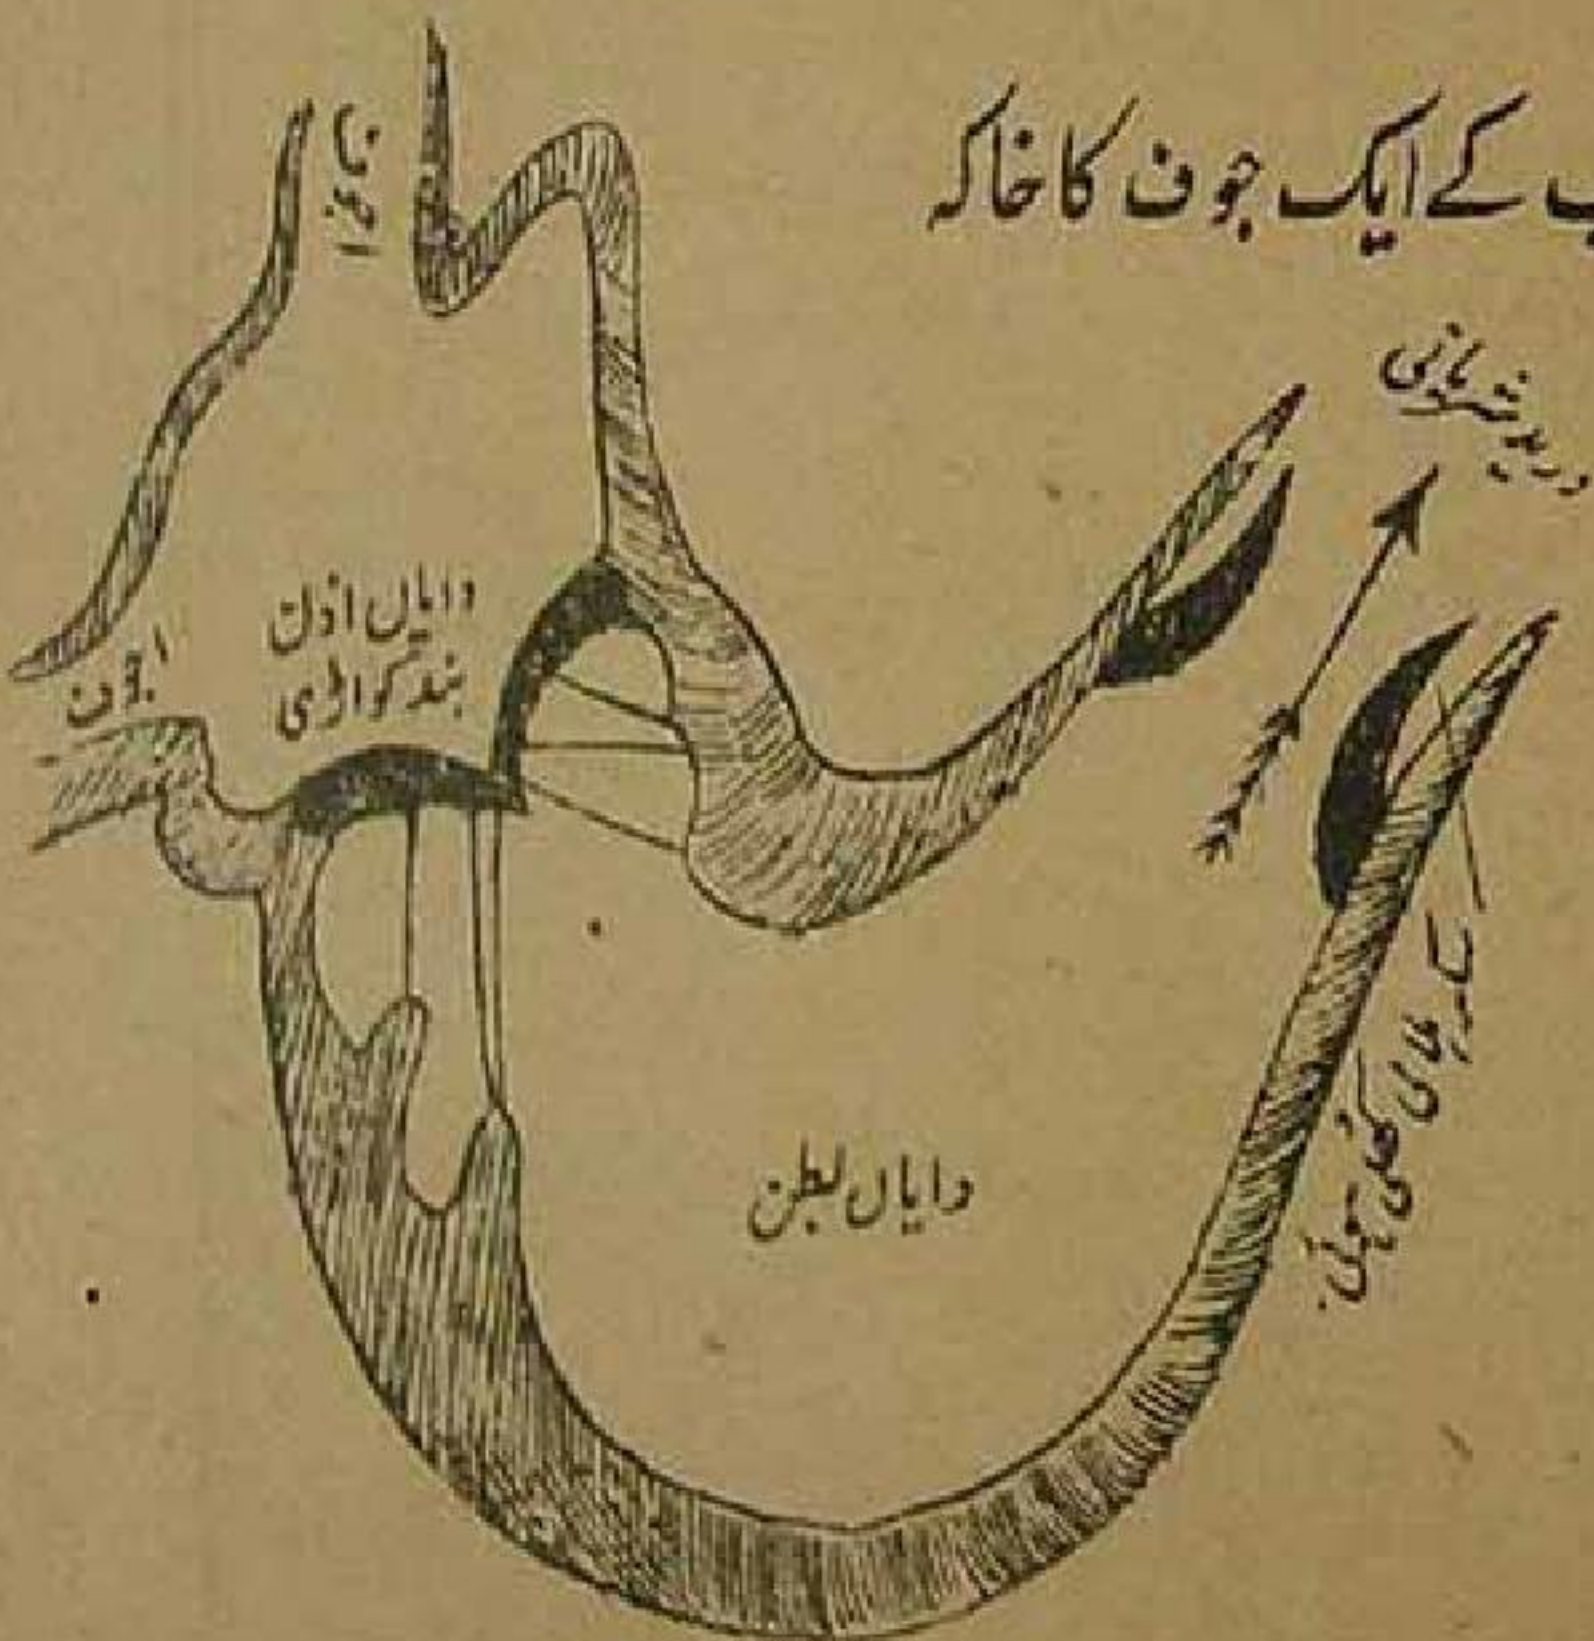 کے ایک جوف کا خاکہ
اجوف
ورید شریانی
دایاں اذن
بند کواڑی
اجوف
ہلالی کھلی ہوئی
دایاں بطن